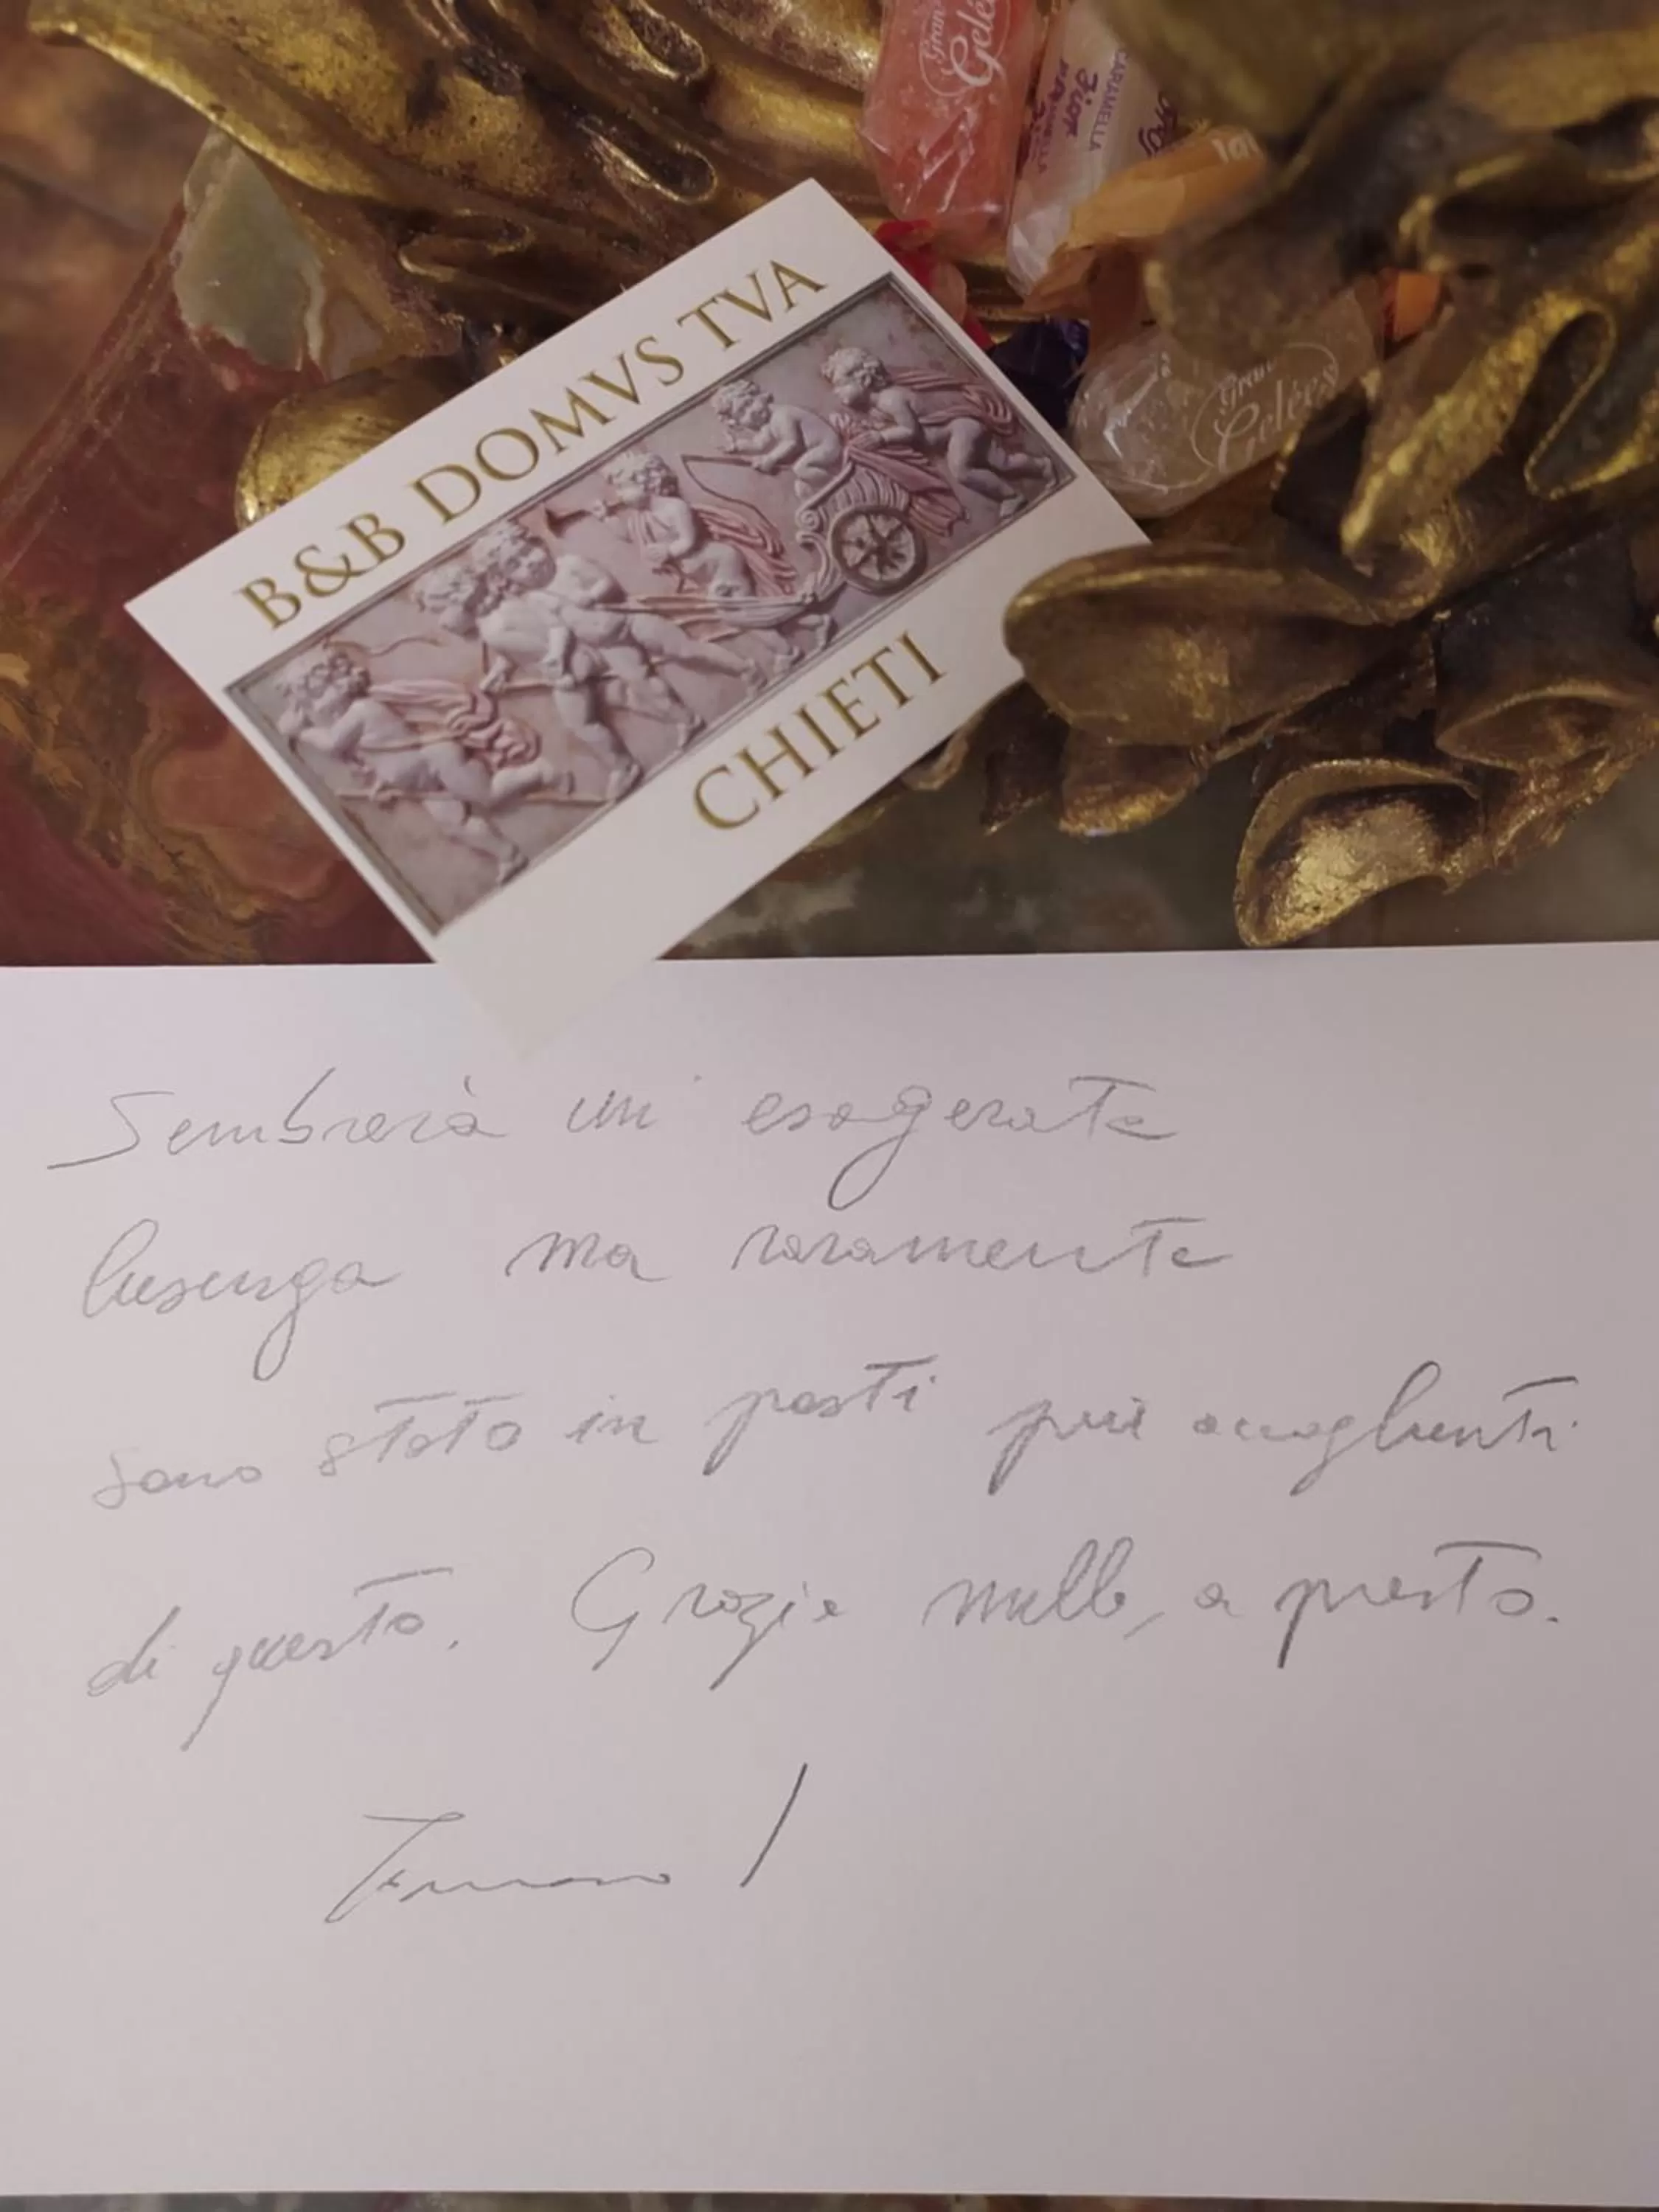 Gran
Gelées
CARAMELLA
Gran
Gelées
B&B DOMVS TVA
CHIETI
Sembrerà un' esagerata
lusinga ma raramente
sono stato in posti più accoglienti
di questo. Grazie mille, a presto.